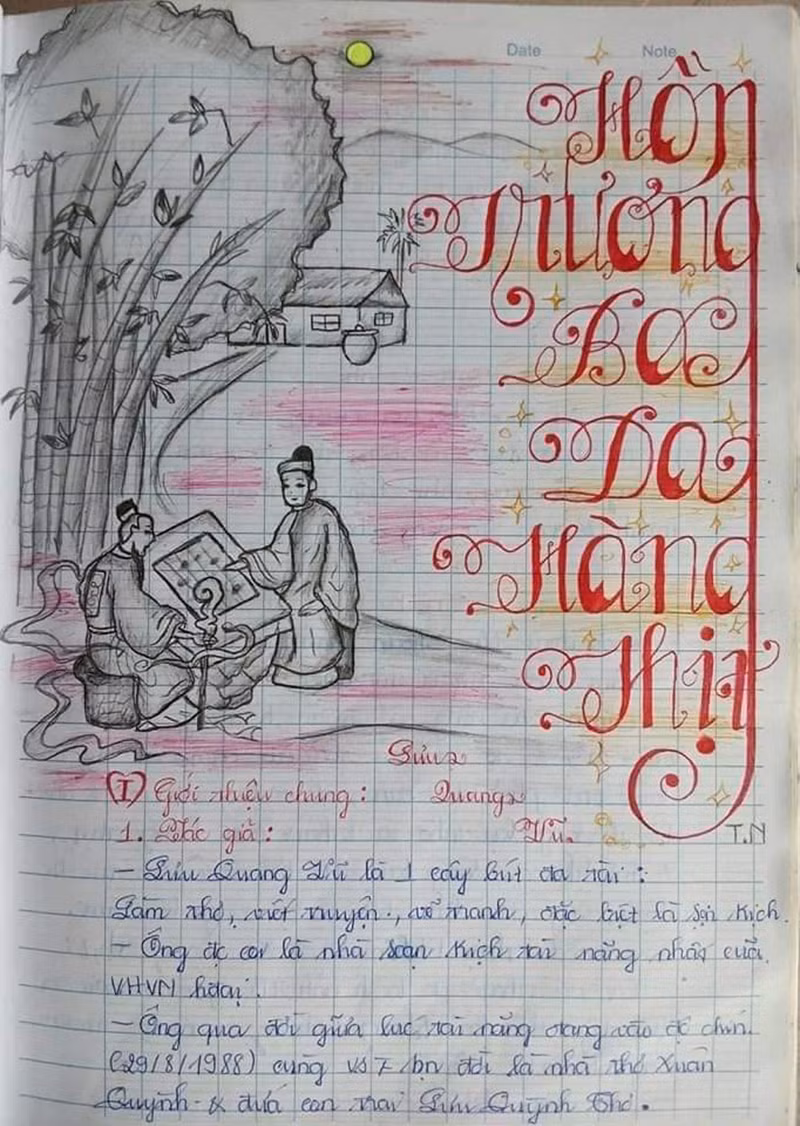 Date Note
Hồn
Trương
Ba
Da
Hàng
Thịt
T.N
Lưu
Quang
Vũ
I Giới thiệu chung:
1. Tác giả:
– Lưu Quang Vũ là 1 cây bút đa tài:
Làm thơ, viết truyện, vẽ tranh, đặc biệt là soạn kịch.
– Ông đc coi là nhà soạn kịch tài năng nhất của
VHVN hđại.
– Ông qua đời giữa lúc tài năng đang vào độ chín
(29/8/1988) cùng vs ng bạn đời là nhà thơ Xuân
Quỳnh & đứa con trai Lưu Quỳnh Thơ.